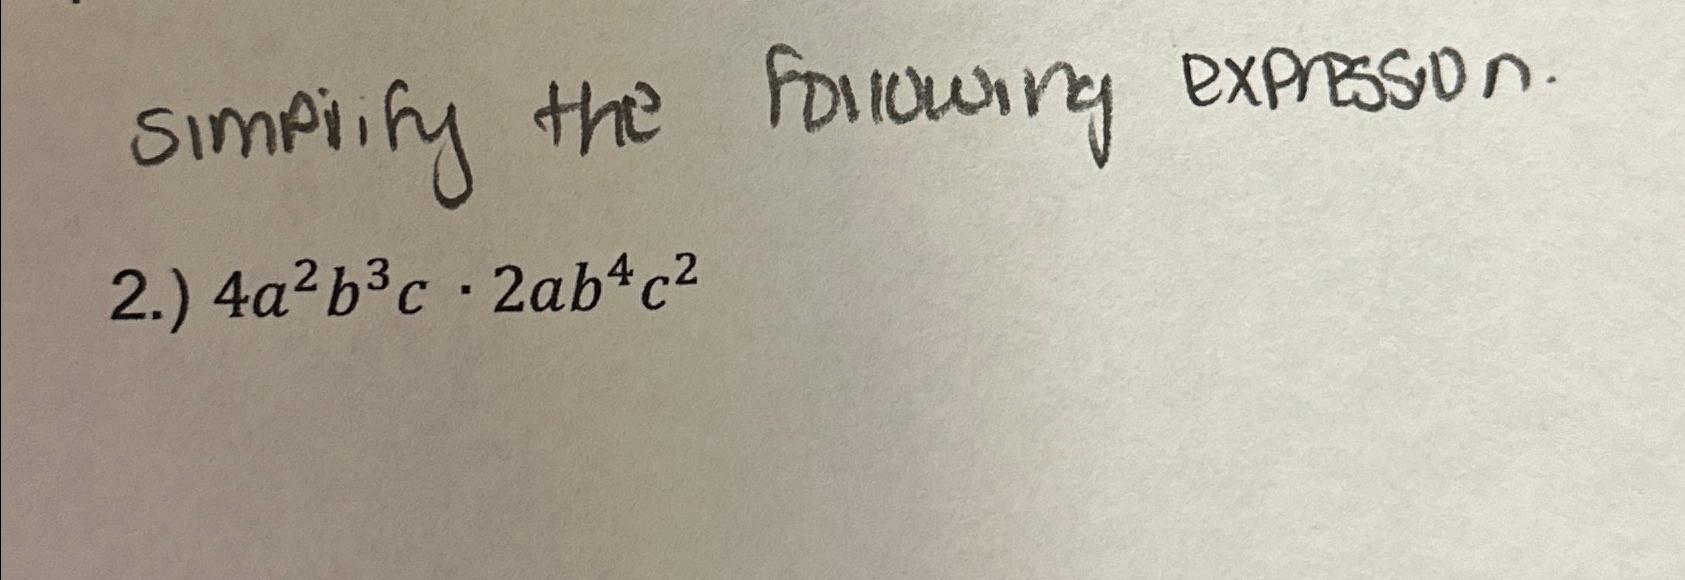 simplify the following expression.
2.) 4a²b³c · 2ab⁴c²